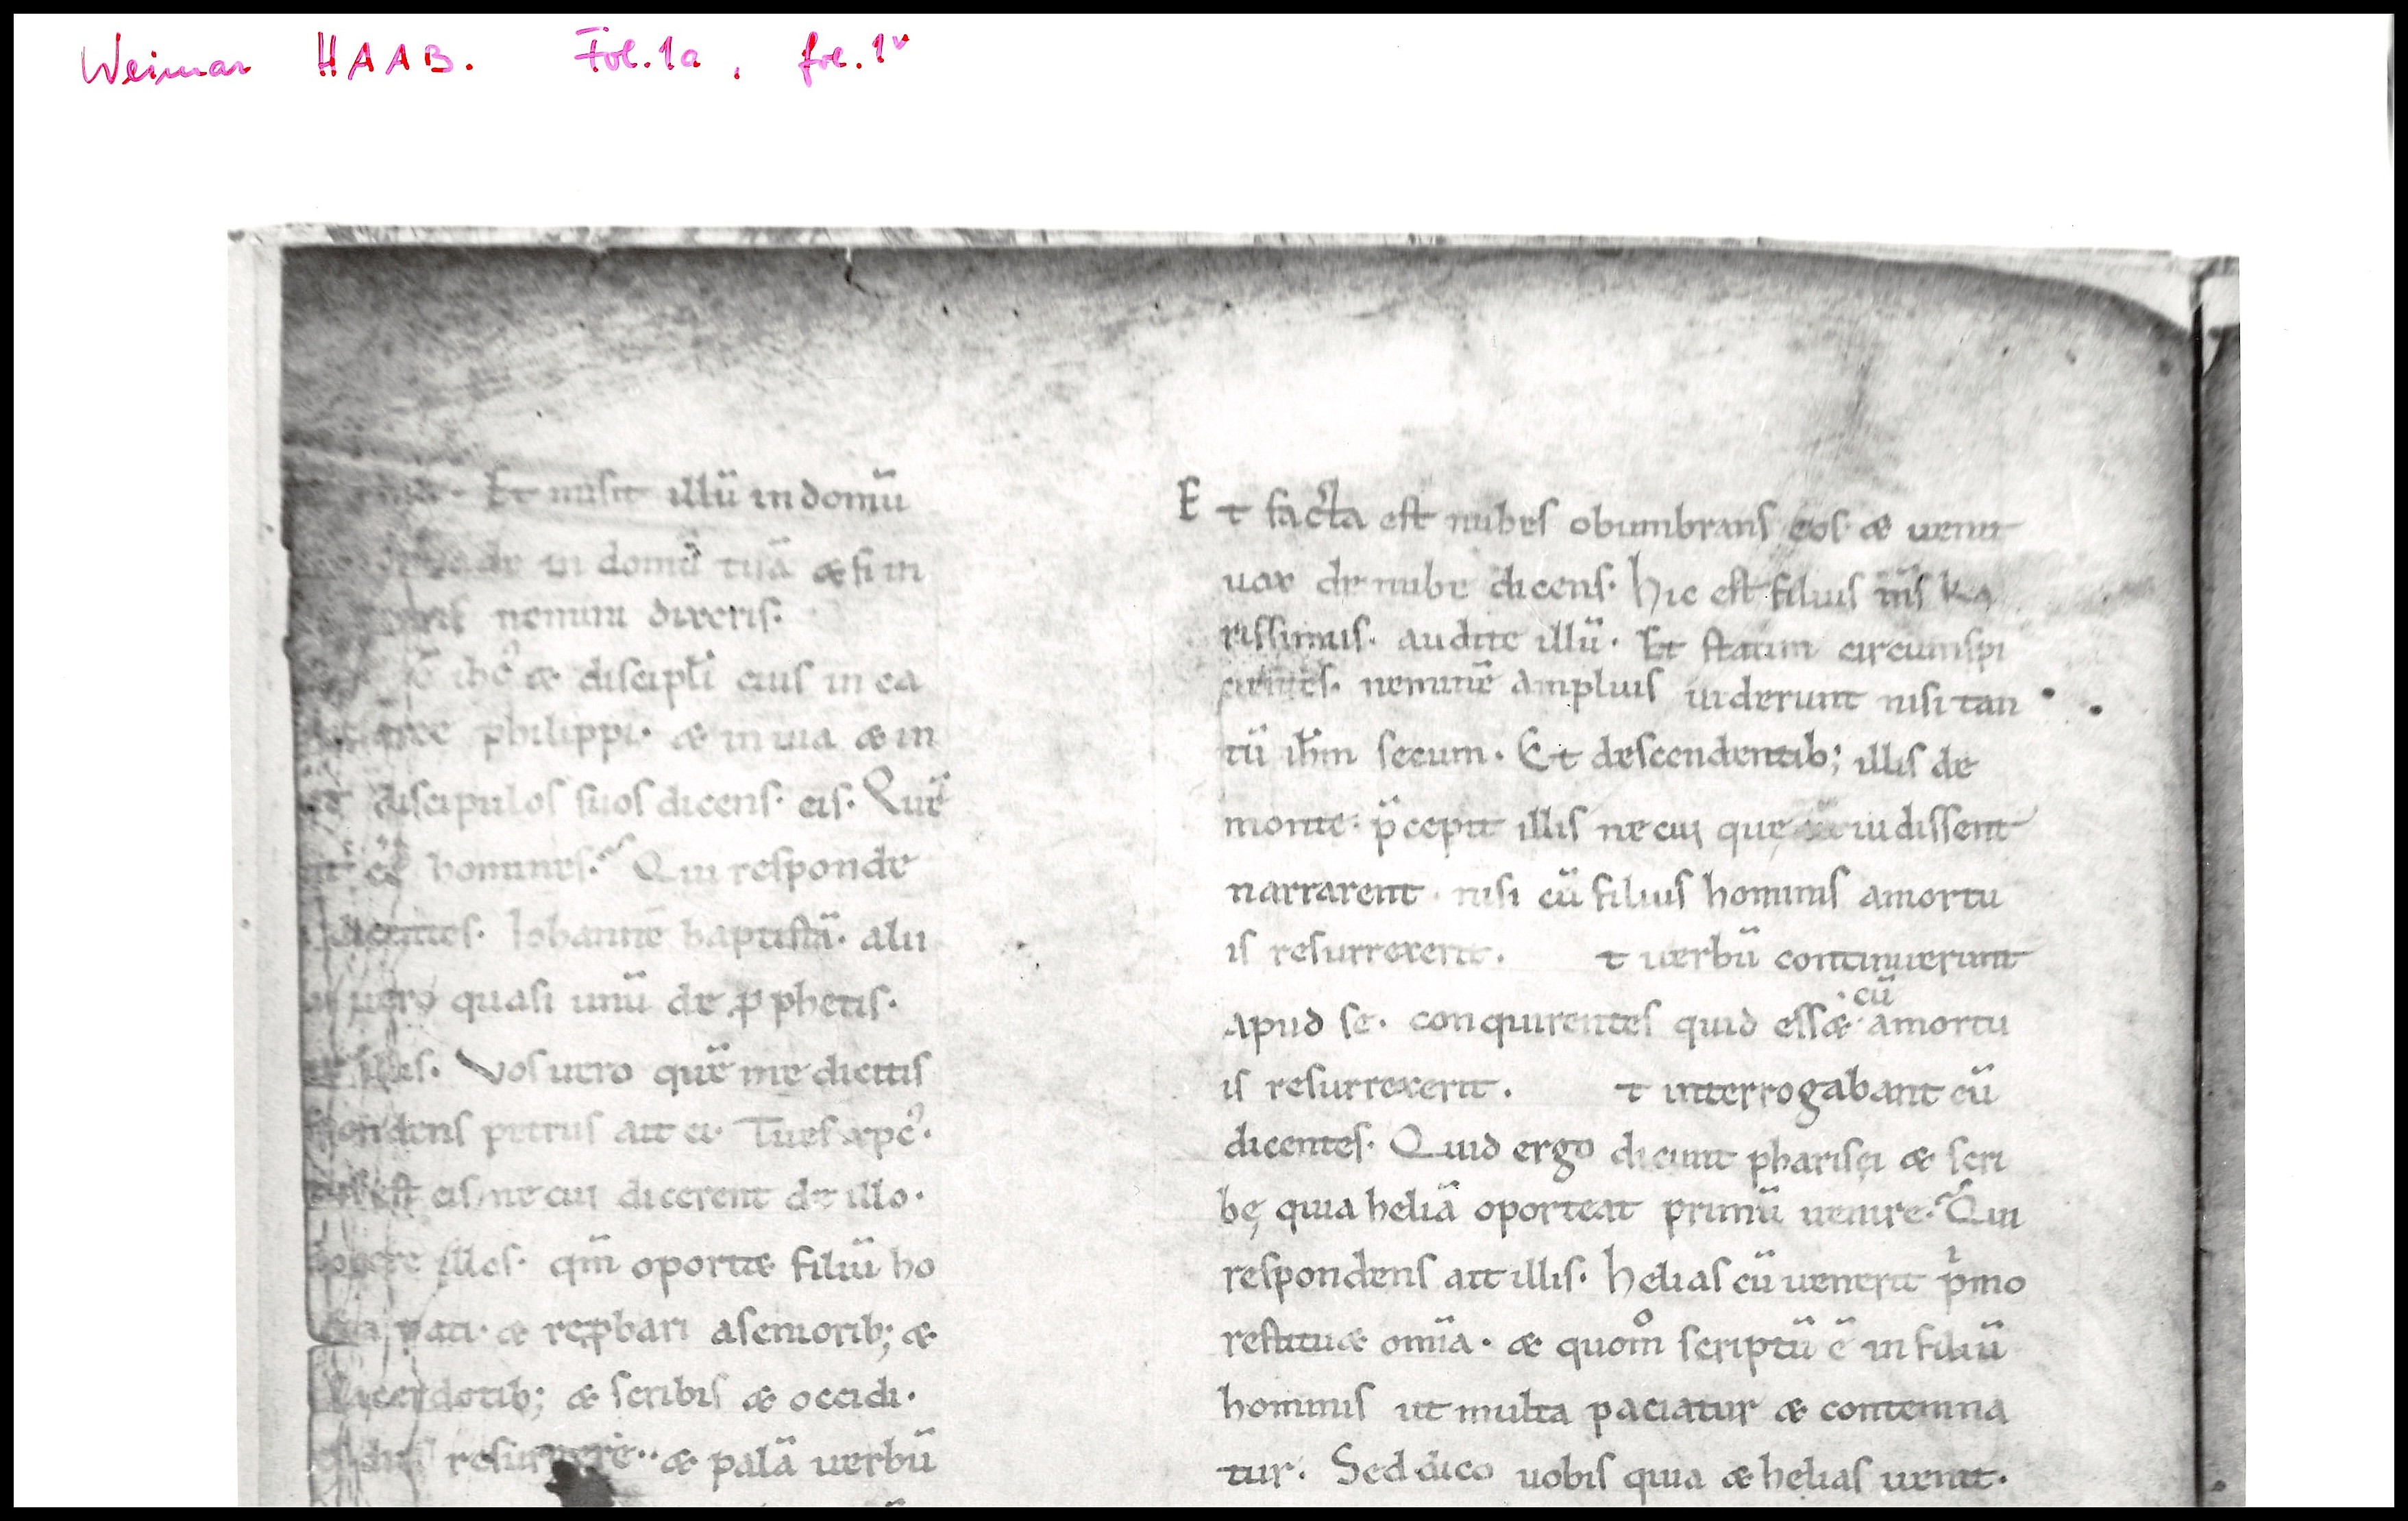 Weimar HAAB. Fol.1a, fol.1v
Et misit illū in domū
in domū tuā & si in
nemini dixeris.
ihc̄ & discipl̄i eius in ea
philippi. & in uia & in
discipulos suos dicens. eis. Quē
ēē homines. Qui responde
dicentes. Iohannē baptistā. alii
uero quasi unū de ꝓphetis.
illis. Vos uero quē me dicitis
petrus ait ei. Tu es xpc̄.
est eis ne cui dicerent de illo.
illos. qm̄ oport& filiū ho
pati. & reꝓbari a seniorib; &
sacerdotib; & scribis & occidi.
& palā uerbū
Et facta est nubes obumbrans eos. & uenit
uox de nube dicens. hic est filius ms̄ ka
rissimus. audite illū. Et statim circumspi
cientes. neminē amplius uiderunt nisi tan
tū ihm̄ secum. Et descendentib; illis de
monte. p̄cepit illis ne cui quę uidissent
narrarent. nisi cū filius hominis a mortu
is resurrexerit. t uerbū continuerunt
apud se. conquirentes quid ess& cū a mortu
is resurrexerit. t interrogabant eū
dicentes. Quid ergo dicunt pharisęi & scri
bę quia heliā oporteat primū uenire. Qui
respondens ait illis. helias cū uenerit pͥmo
restitu& om̄ia. & quom̊ scriptū ē in filiū
hominis ut multa paciatur & contemna
tur. Sed dico uobis quia & helias uenit.